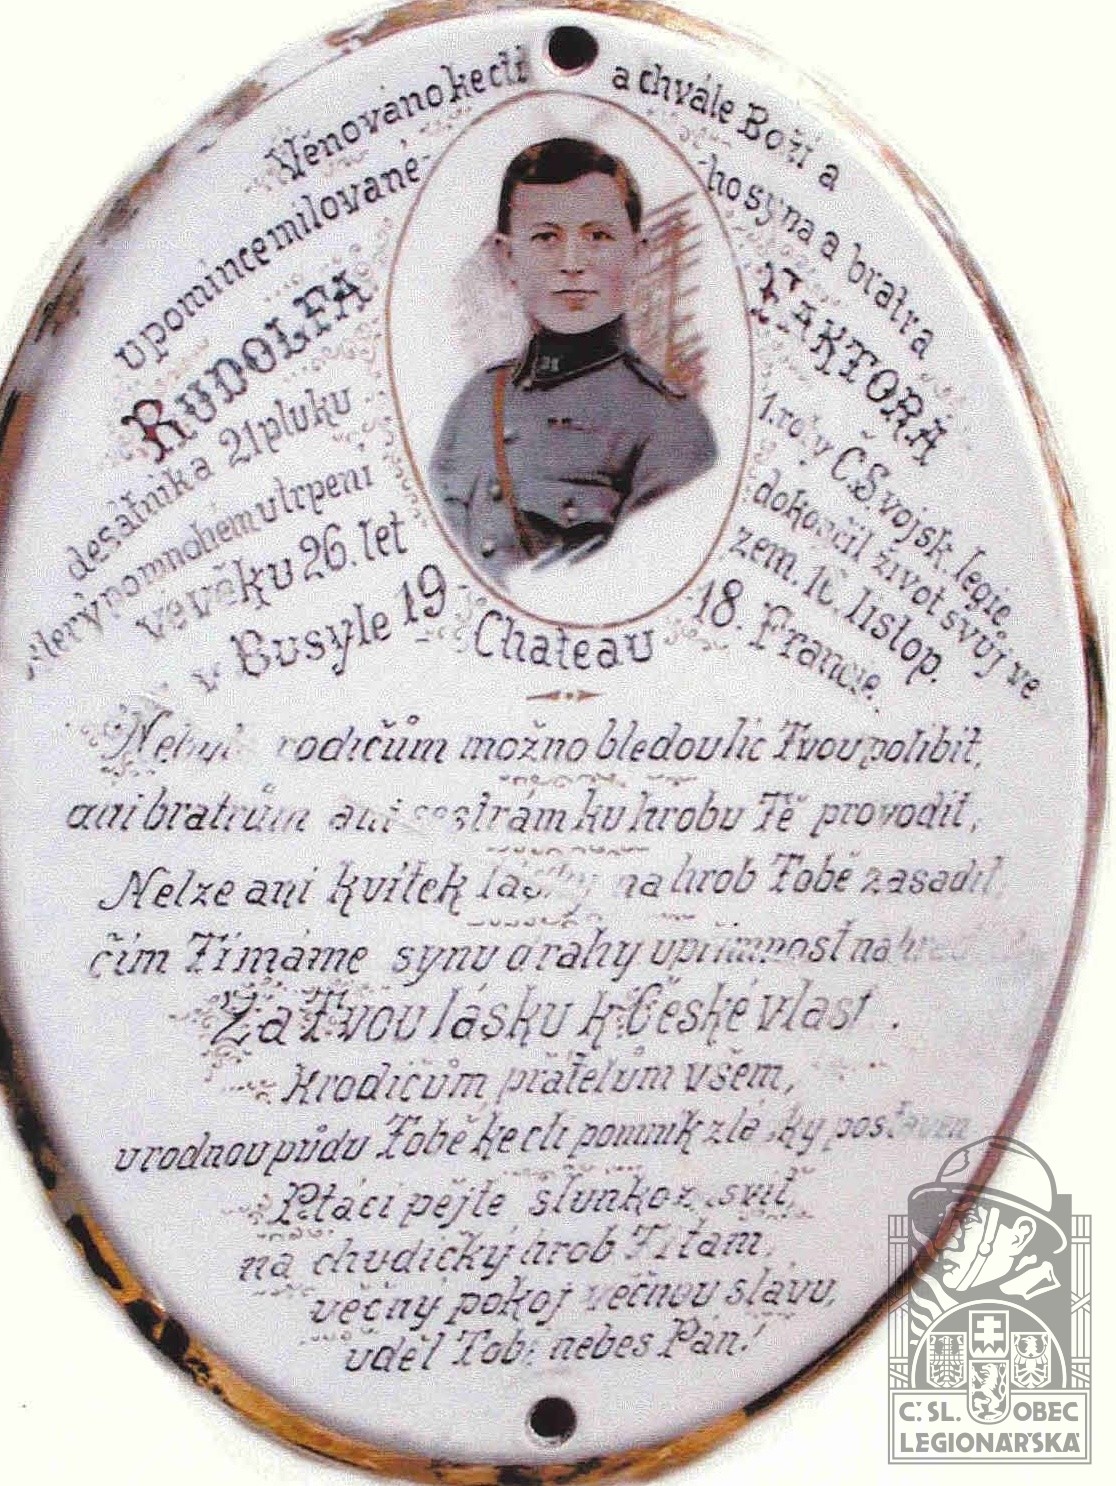 Věnováno ke cti a chvále Boží a
upomínce milované- ho syna a bratra
RUDOLFA FAKTORA
desátníka 21 pluku 1. roty Č.S vojsk. legie
který po mnohém utrpení dokončil život svůj ve
ve věku 26. let zem. 16. listop.
v Busyle 19 18. Francie.
Chateau
21
Nebylo rodičům možno bledou líc Tvou políbit,
ani bratrům ani sestrám ku hrobu Tě provodit,
Nelze ani kvítek lásky na hrob Tobě zasadit,
čím Ti máme synu drahý upřímnost na
Za Tvou lásku k České vlast .
k rodičům, přátelům všem,
v rodnou půdu Tobě ke cti pomník z lásky postaven
Ptáci pějte slunko z svit,
na chudičký hrob Ti tam,
věčný pokoj věčnou slávu,
uděl Tobě nebes Pán!
Č. SL. OBEC
LEGIONÁŘSKÁ